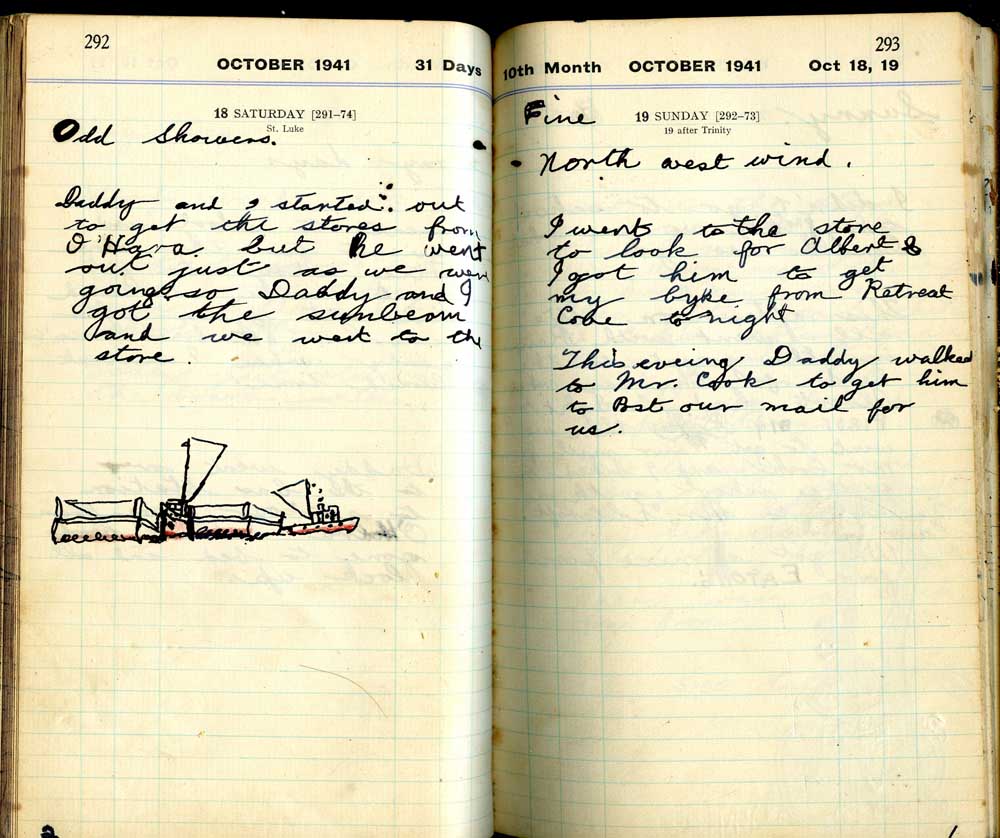 292
OCTOBER 1941 31 Days
18 SATURDAY [291–74]
St. Luke
Odd Showers.
Daddy and I started out
to get the stores from
O'Hara but he went
out just as we were
going so Daddy and I
got the sunbeam
and we went to the
store.
293
10th Month OCTOBER 1941 Oct 18, 19
19 SUNDAY [292–73]
19 after Trinity
Fine
North west wind.
I went to the store
to look for Albert &
I got him to get
my byke from Retreat
Cove to night
This eveing Daddy walked
to Mr. Cook to get him
to Post our mail for
us.